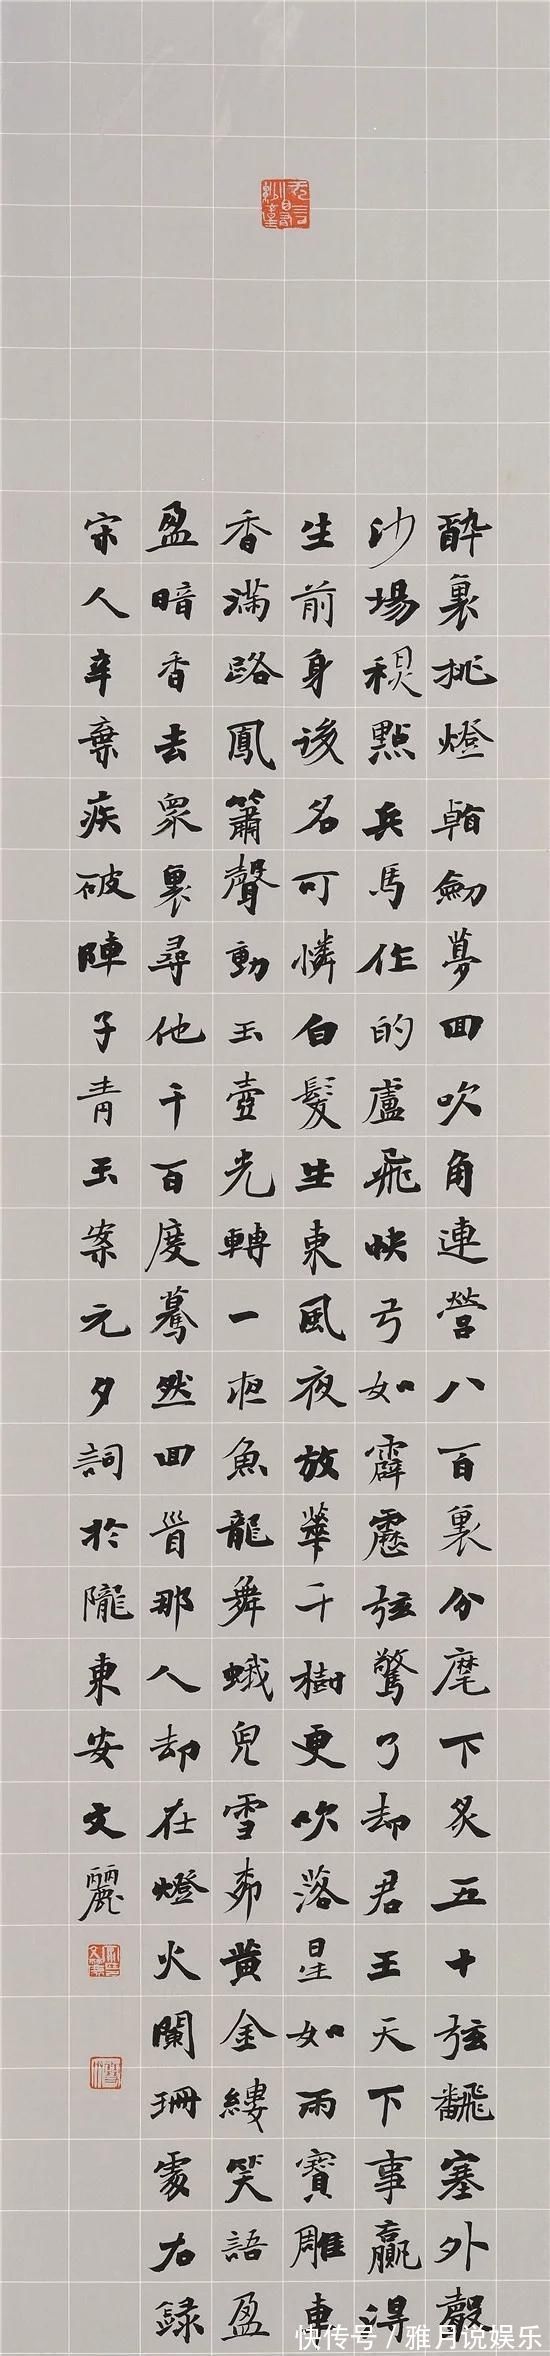 醉裏挑燈看劍夢回吹角連營八百裏分麾下炙五十弦飜塞外聲
沙場秋點兵馬作的盧飛快弓如霹靂弦驚了却君王天下事贏得
生前身後名可憐白髮生東風夜放華千樹更吹落星如雨寶雕車
香滿路鳳簫聲動玉壺光轉一夜魚龍舞蛾兒雪柳黃金縷笑語盈
盈暗香去眾裏尋他千百度驀然回首那人却在燈火闌珊處右録
宋人辛棄疾破陣子青玉案元夕詞於隴東安文麗
快传号/雅月说娱乐